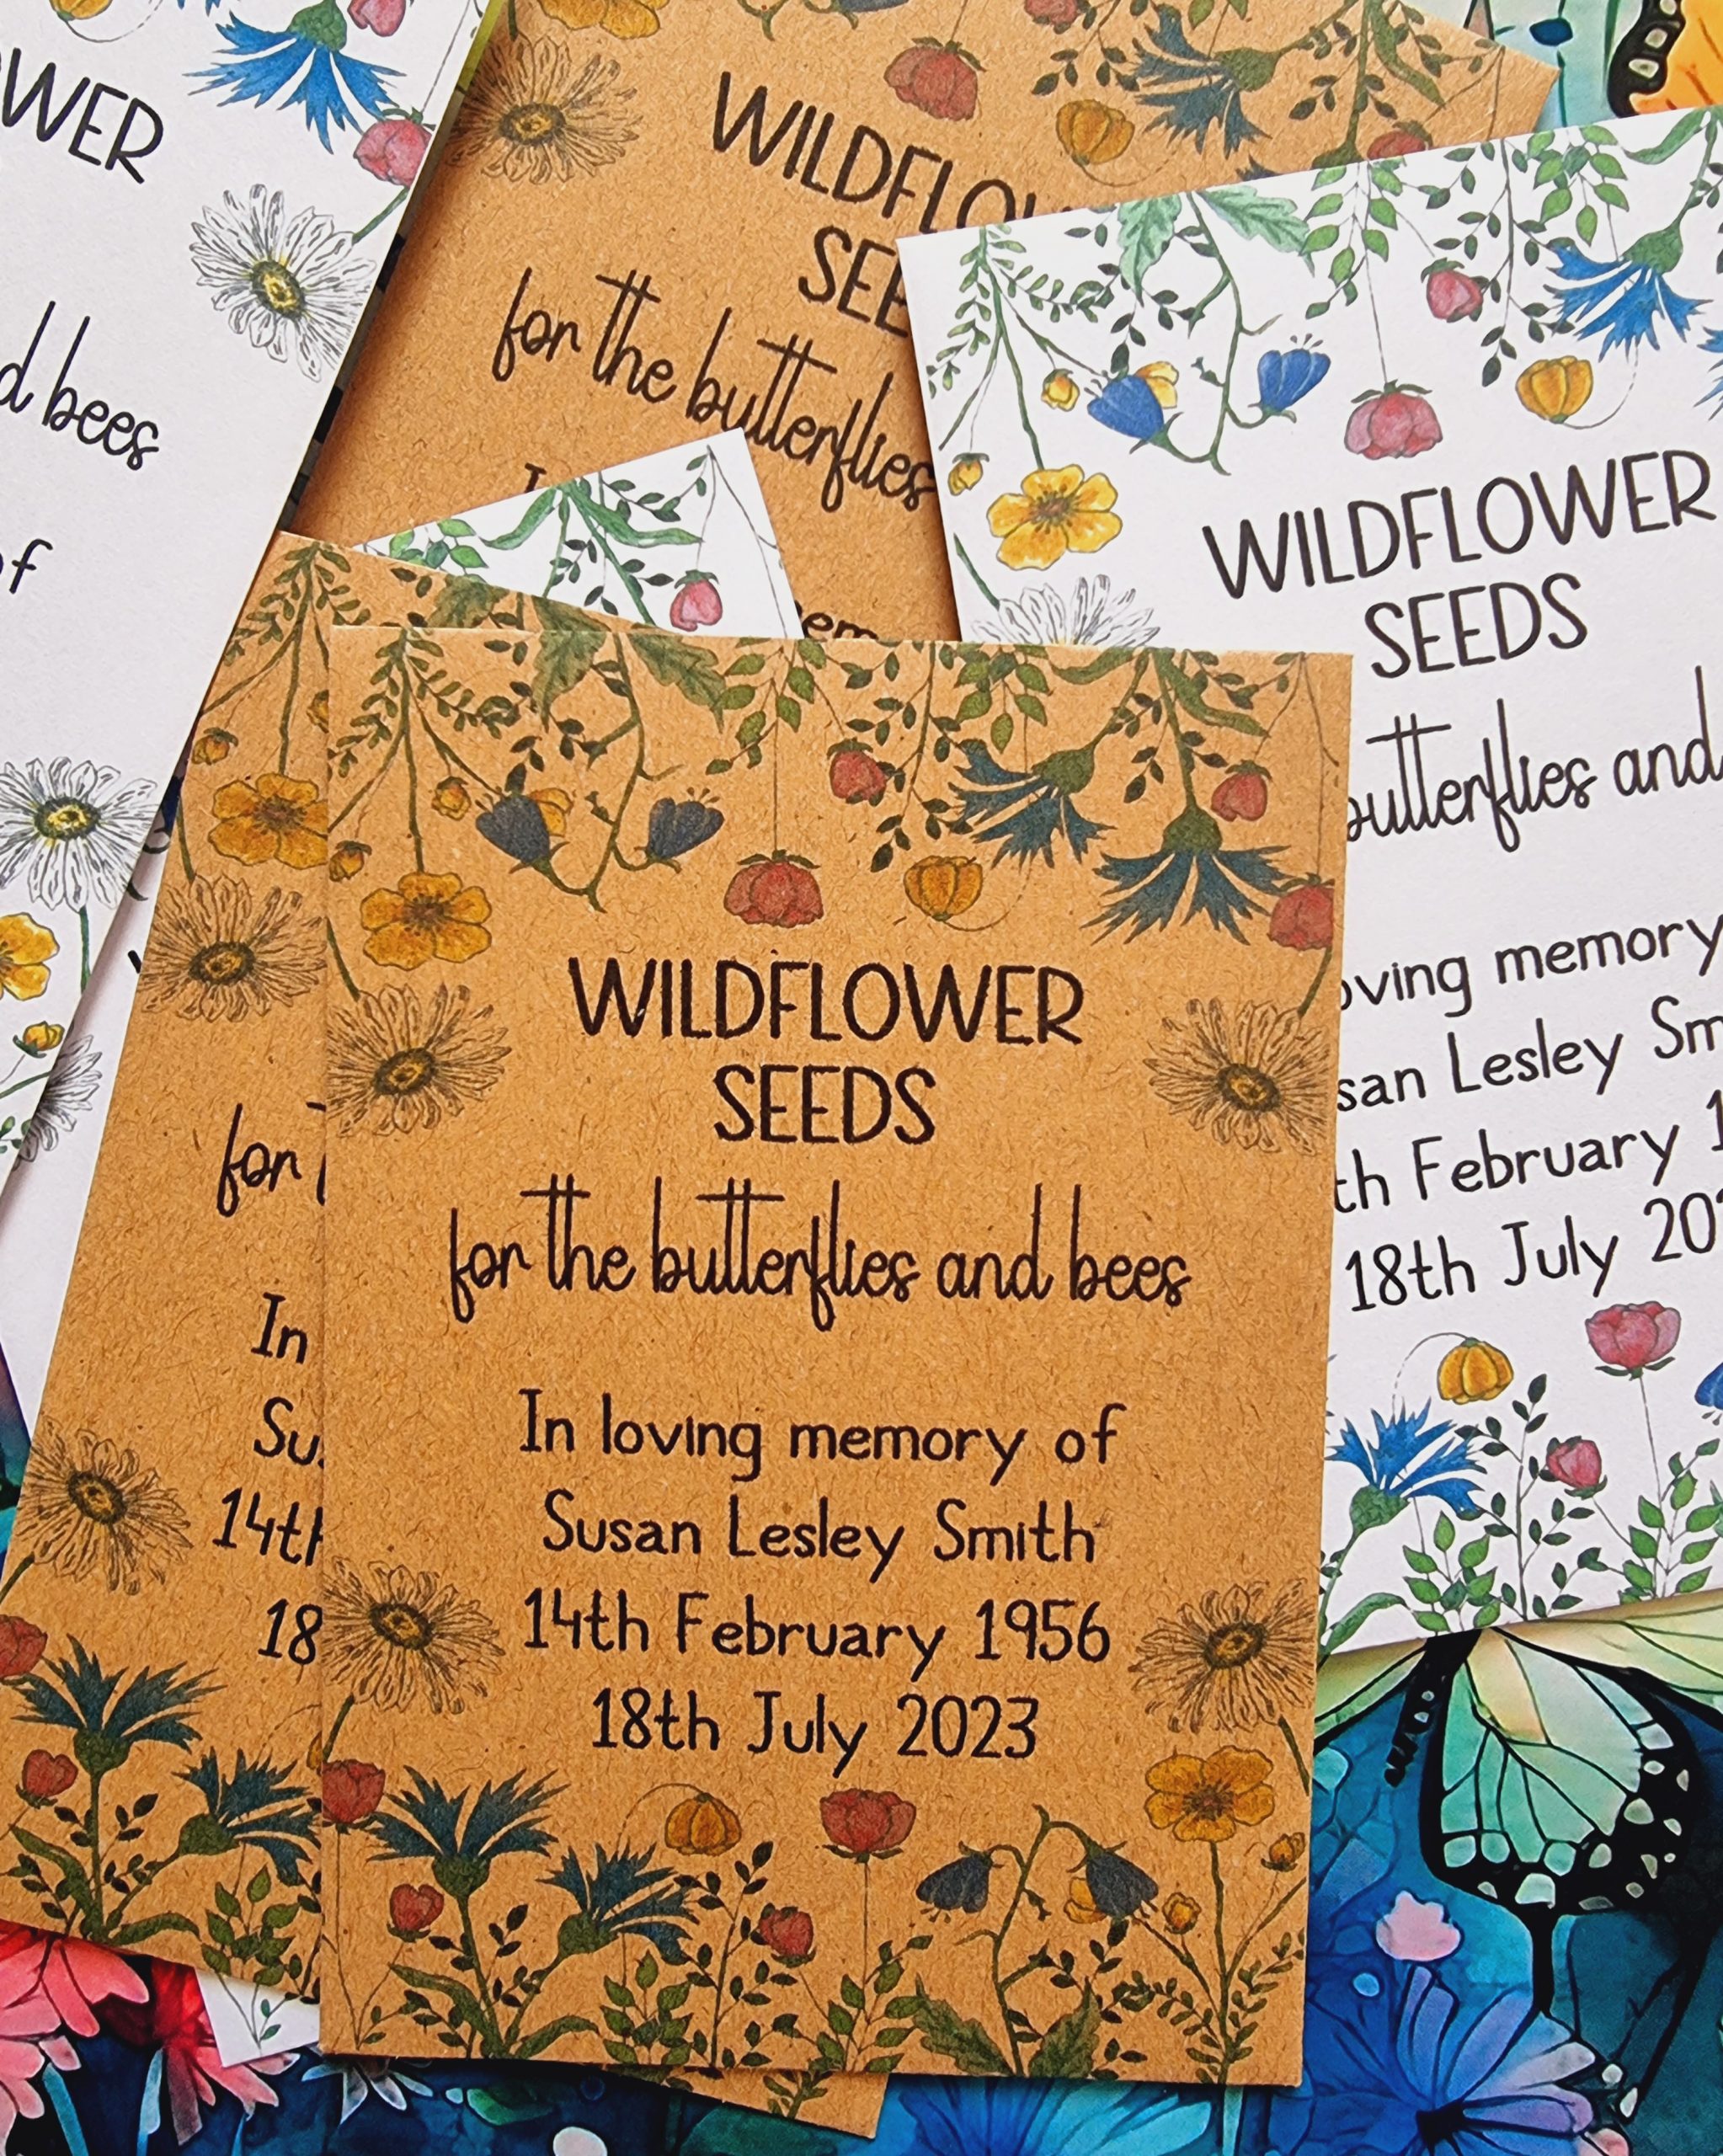 WER
d bees
of
WILDFLOW
SEE
for the butterflies
WILDFLOWER
SEEDS
butterflies and
oving memory
san Lesley Sm
th February 1
18th July 202
for
In
Su
14th
18
WILDFLOWER
SEEDS
for the butterflies and bees
In loving memory of
Susan Lesley Smith
14th February 1956
18th July 2023